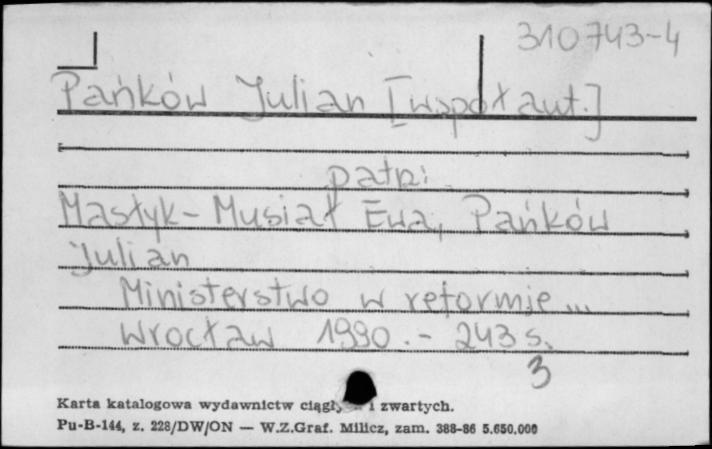 310743-4
Pańków Julian [współaut.]
patrz:
Mastyk-Musiał Ewa, Pańków
Julian
Ministerstwo w reformie ...
Wrocław 1990.- 243 s.
3
Karta katalogowa wydawnictw i zwartych.
Pu-B-144, z. 228/DW/ON — W.Z.Graf. Milicz, zam. 388-86 5.650.000